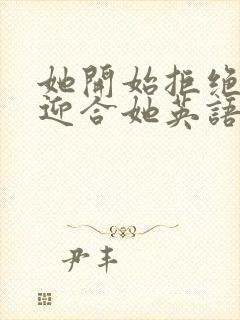 她開始拒绝
迎合她英語
尹丰